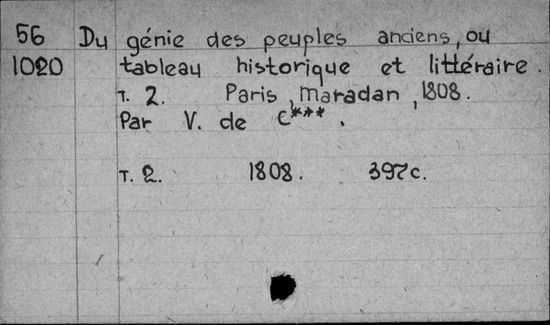 56 Du génie des peuples anciens, ou
1020 tableau historique et littéraire.
T. 2. Paris, Maradan, 1808.
Par V. de C***.
T. 2. 1808. 397c.